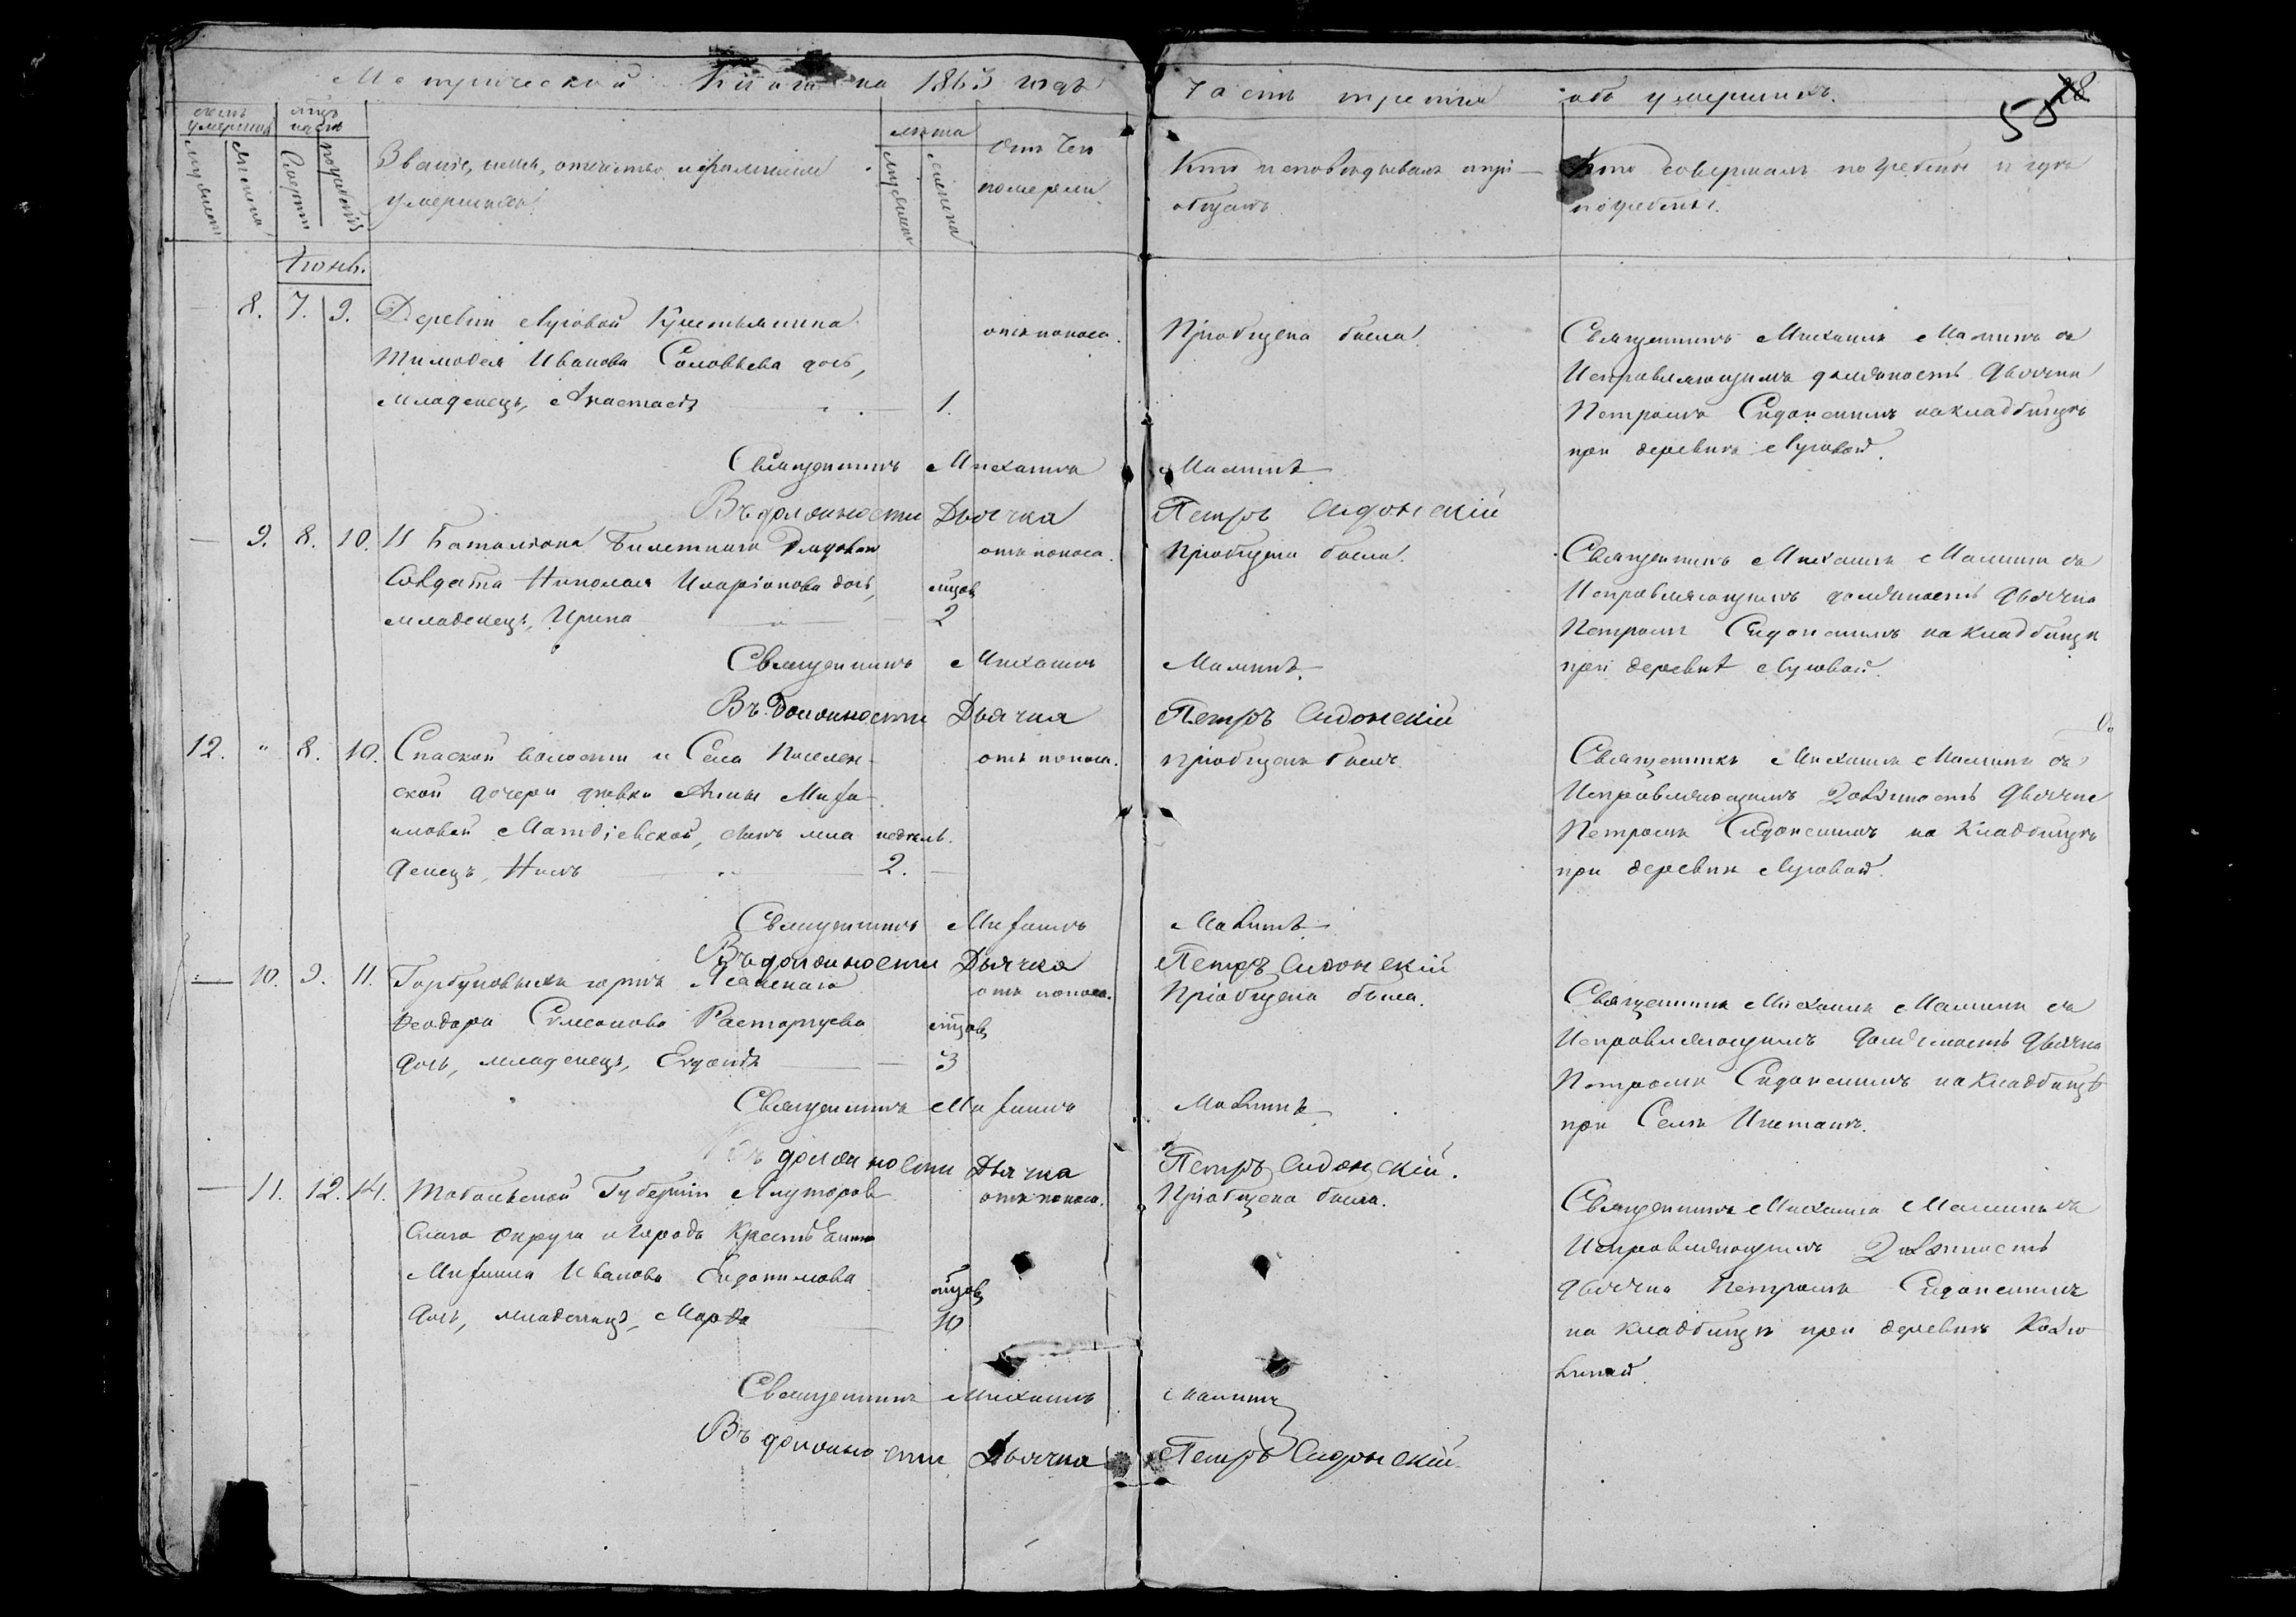 Метрической книги на 1863 годъ
Часть третия объ умершихъ.
58
28
счетъ умершихъ
мужеска
женска
мѣсяцъ и день
Смерти
погребенія
Званіе, имя, отчество и фамилия
умершихъ
лѣта
мужеска
женска
отъ чего
померли.
Кто исповѣдывалъ и прі-
общалъ
Кто совершалъ погребеніе и гдѣ
погребены.
Іюнь.
8. 7. 9. Деревни Луговой Крестьянина
Тимофея Иванова Соловьева дочь,
младенецъ, Анастасія 1.
отъ поноса.
Пріобщена была
Священникъ Михаилъ Малинъ съ
Исправляющимъ должность дьячка
Петромъ Сидонскимъ на кладбищѣ
при деревнѣ Луговой.
Священникъ Михаилъ Малинъ
Въ должности Дьячка Петръ Сидонскій
9. 8. 10. Баталіона Билетнаго Рядовой
Солдата Николая Иларіонова дочь,
младенецъ, Ирина мѣсяцовъ 2
отъ поноса.
Пріобщена была.
Священникъ Михаилъ Малинъ съ
Исправляющимъ должность дьячка
Петромъ Сидонскимъ на кладбищѣ
при деревнѣ Луговой.
Священникъ Михаилъ Малинъ.
Въ должности Дьячка Петръ Сидонскій
12. " 8. 10. Спаской волости и Села Поселен-
ской дочери дѣвки Анны Миха-
иловой Матѳіевской, сынъ мла
денецъ, Нилъ недѣль. 2.
отъ поноса.
пріобщенъ былъ
Священникъ Михаилъ Малинъ съ
Исправляющимъ Должность дьячка
Петромъ Сидонскимъ на Кладбищѣ
при деревнѣ Луговой.
Священникъ Михаилъ Малинъ.
Въ должности Дьячка Петръ Сидонскій
10. 9. 11.
Ѳеодора Симеонова Расторгуева
дочь, младенецъ, мѣсяцовъ 3
отъ поноса.
Пріобщена была.
Священникъ Михаилъ Малинъ съ
Исправляющимъ должность дьячка
Петромъ Сидонскимъ на Кладбищѣ
при Селѣ
Священникъ Михаилъ Малинъ
Въ должности Дьячка Петръ Сидонскій.
11. 12. 14. Тобольской Губерніи Ялуторов
скаго округа и города Крестьянина
Михаила Иванова
дочь, младенецъ, Марѳа мѣсяцовъ 10
отъ поноса.
Пріобщена была.
Священникъ Михаилъ Малинъ съ
Исправляющимъ Должность
дьячка Петромъ Сидонскимъ
на кладбищѣ при деревнѣ
Священникъ Михаилъ Малинъ
Въ должности Дьячка Петръ Сидонскій